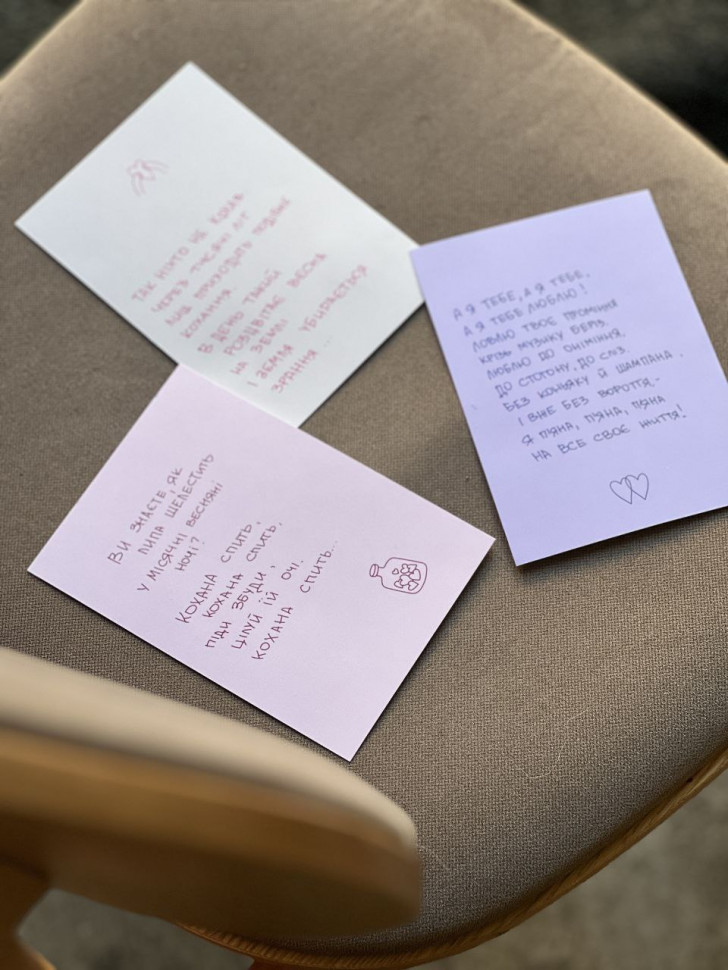 ТАК НІХТО НЕ КОХАВ
ЧЕРЕЗ ТИСЯЧІ ЛІТ
ЛИШ ПРИХОДИТЬ ПОДІБНЕ
КОХАННЯ
В ДЕНЬ ТАКИЙ
РОЗЦВІТАЄ ВЕСНА
НА ЗЕМЛІ
І ЗЕМЛЯ УБИРАЄТЬСЯ
ЗРАННЯ...
А Я ТЕБЕ, А Я ТЕБЕ,
А Я ТЕБЕ ЛЮБЛЮ!
ЛОВЛЮ ТВОЄ ПРОМІННЯ
КРІЗЬ МУЗИКУ БЕРІЗ.
ЛЮБЛЮ ДО ОНІМІННЯ,
ДО СТОГОНУ, ДО СЛІЗ.
БЕЗ КОНЬЯКУ Й ШАМПАНА,
І ВЖЕ БЕЗ ВОРОТТЯ,-
Я П'ЯНА, П'ЯНА, П'ЯНА
НА ВСЕ СВОЄ ЖИТТЯ!
ВИ ЗНАЄТЕ, ЯК
ЛИПА ШЕЛЕСТИТЬ
У МІСЯЧНІ ВЕСНЯНІ
НОЧІ?
КОХАНА СПИТЬ,
КОХАНА СПИТЬ,
ПІДИ ЗБУДИ,
ЦІЛУЙ ЇЙ ОЧІ.
КОХАНА СПИТЬ...